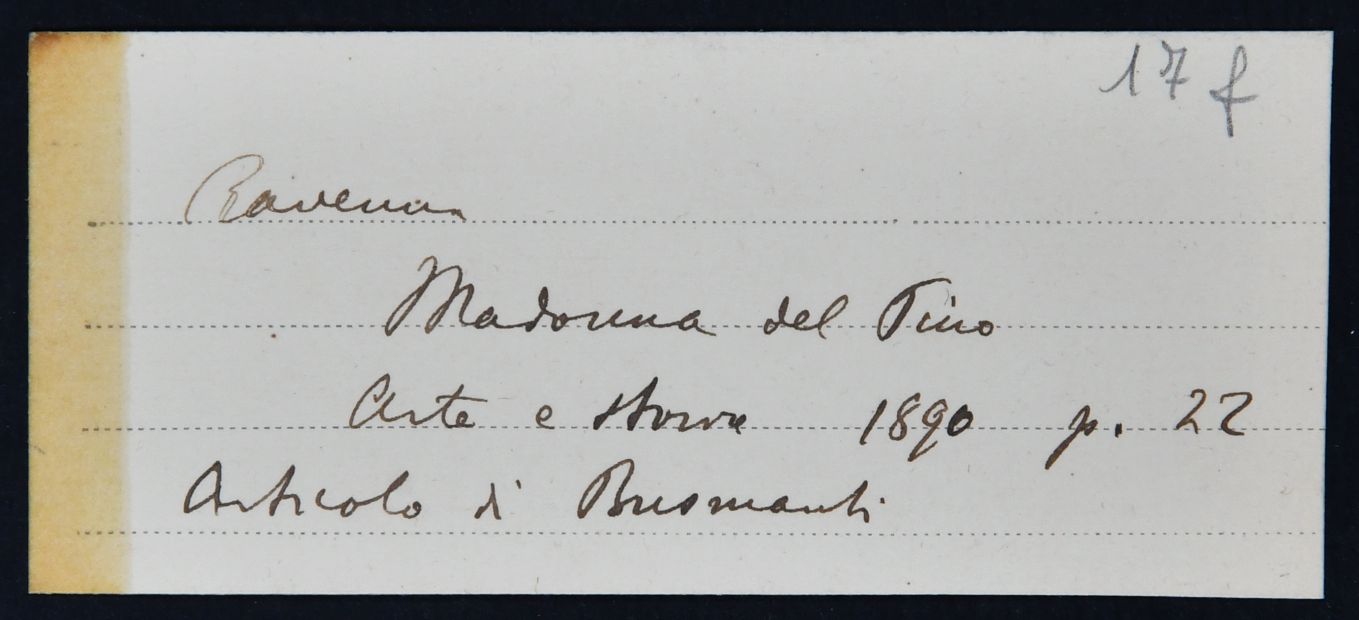 17 f
Ravenna
Madonna del Pino
Arte e storia 1890 p. 22
Articolo di Busmanti